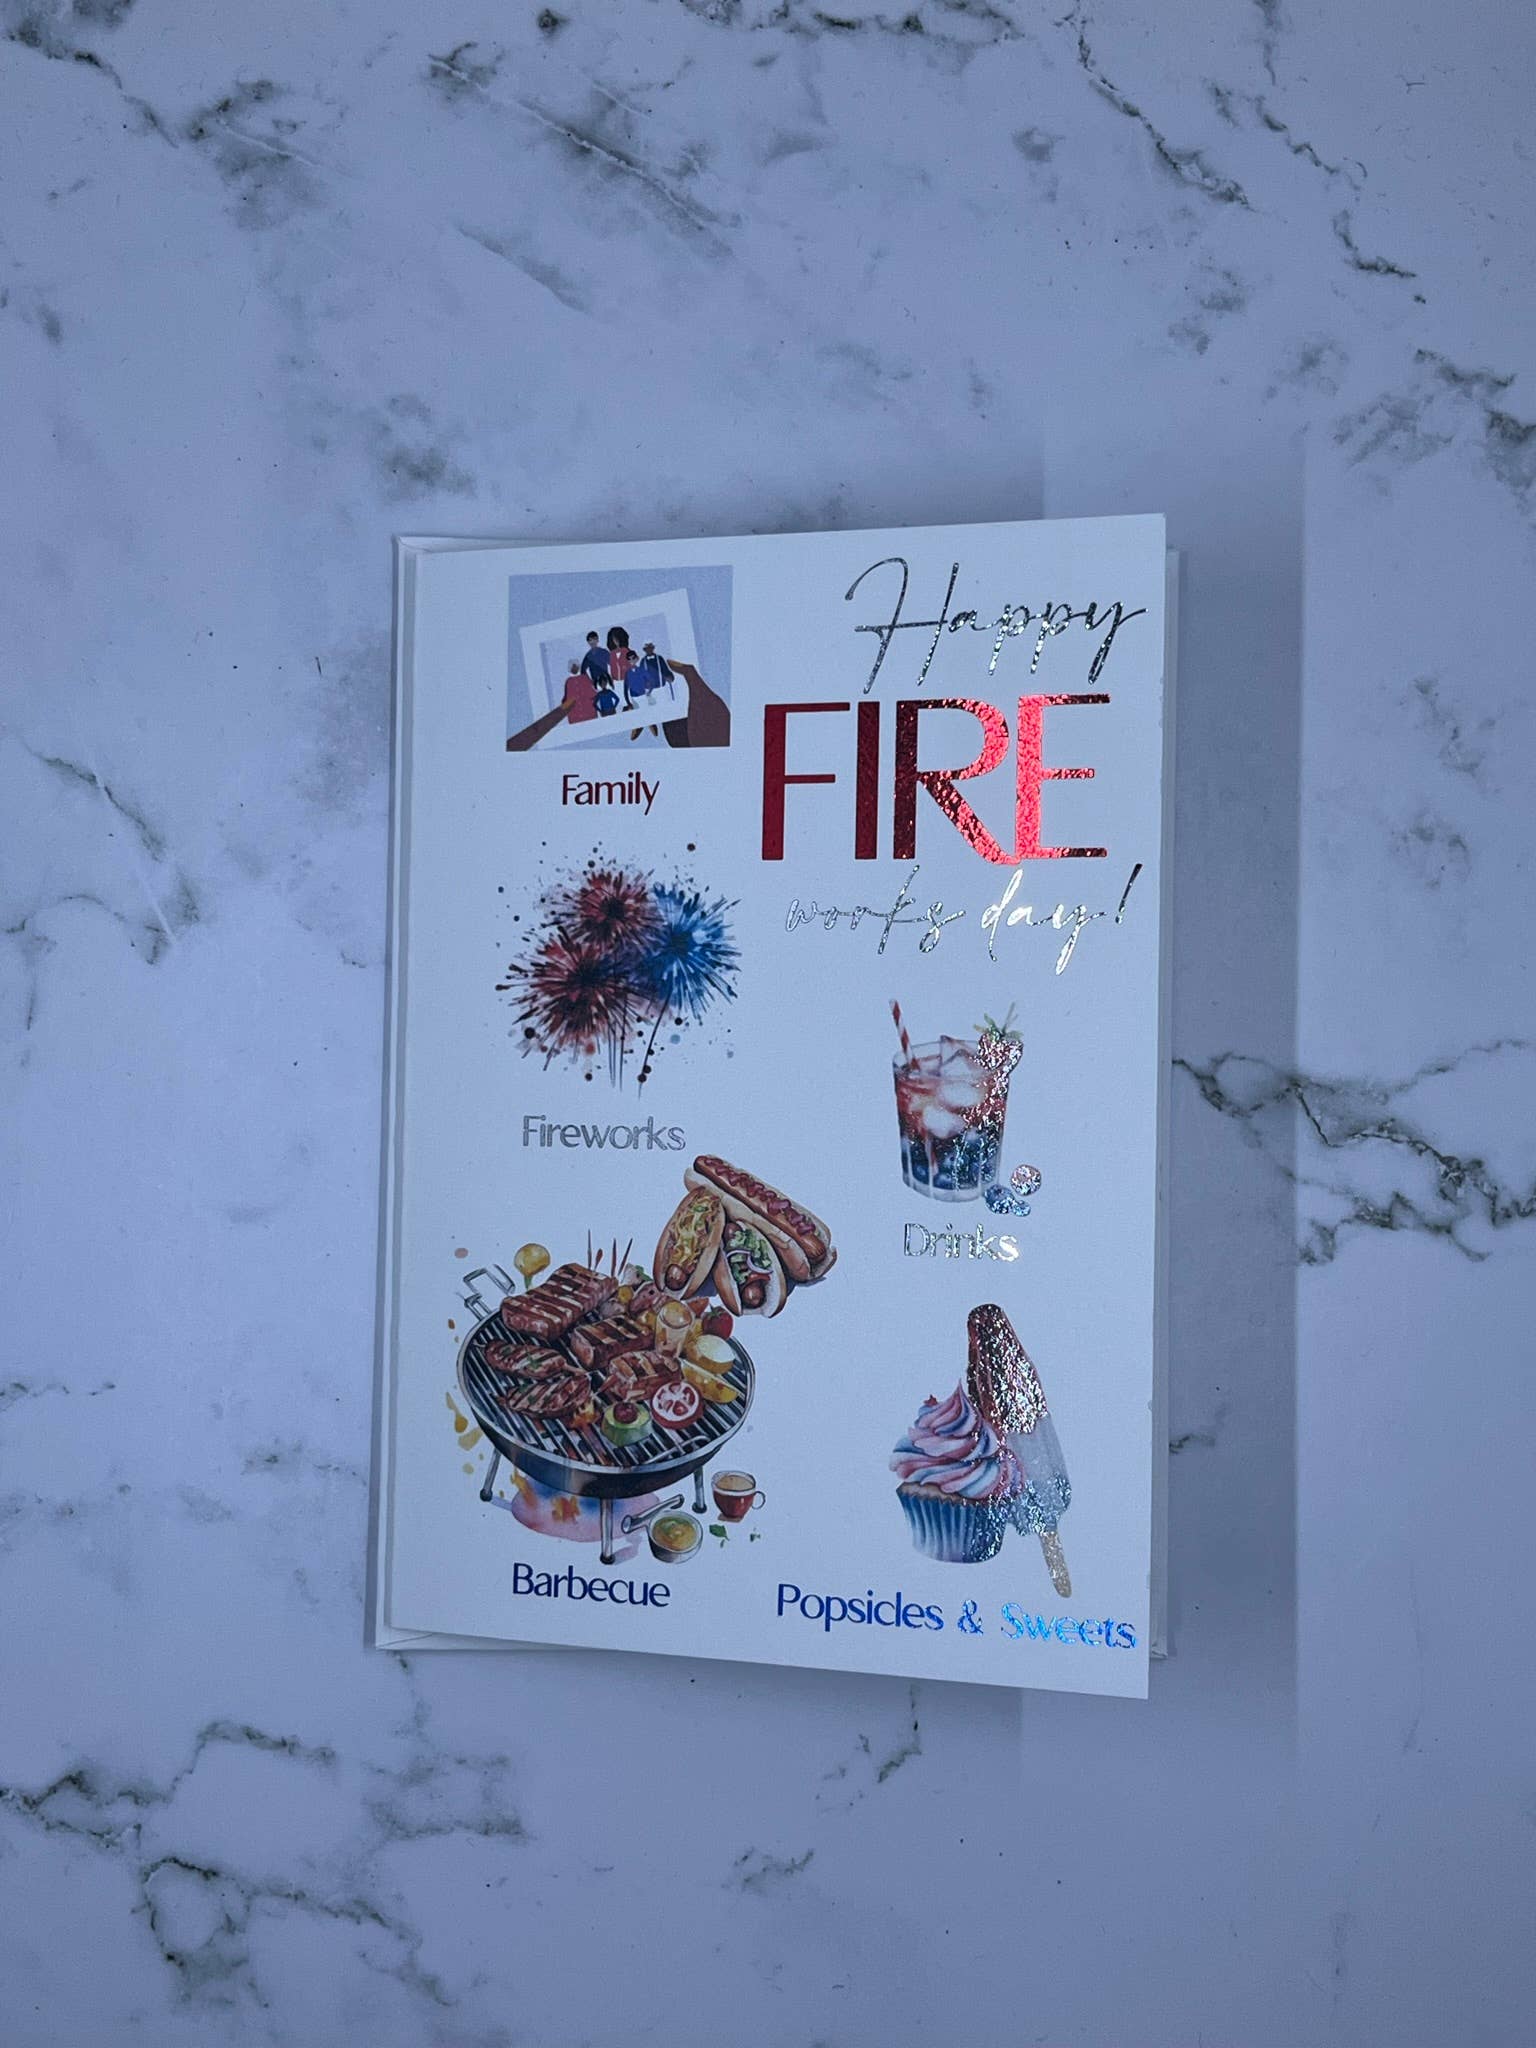 Happy
FIRE
works day!
Family
Fireworks
Drinks
Barbecue
Popsicles & Sweets